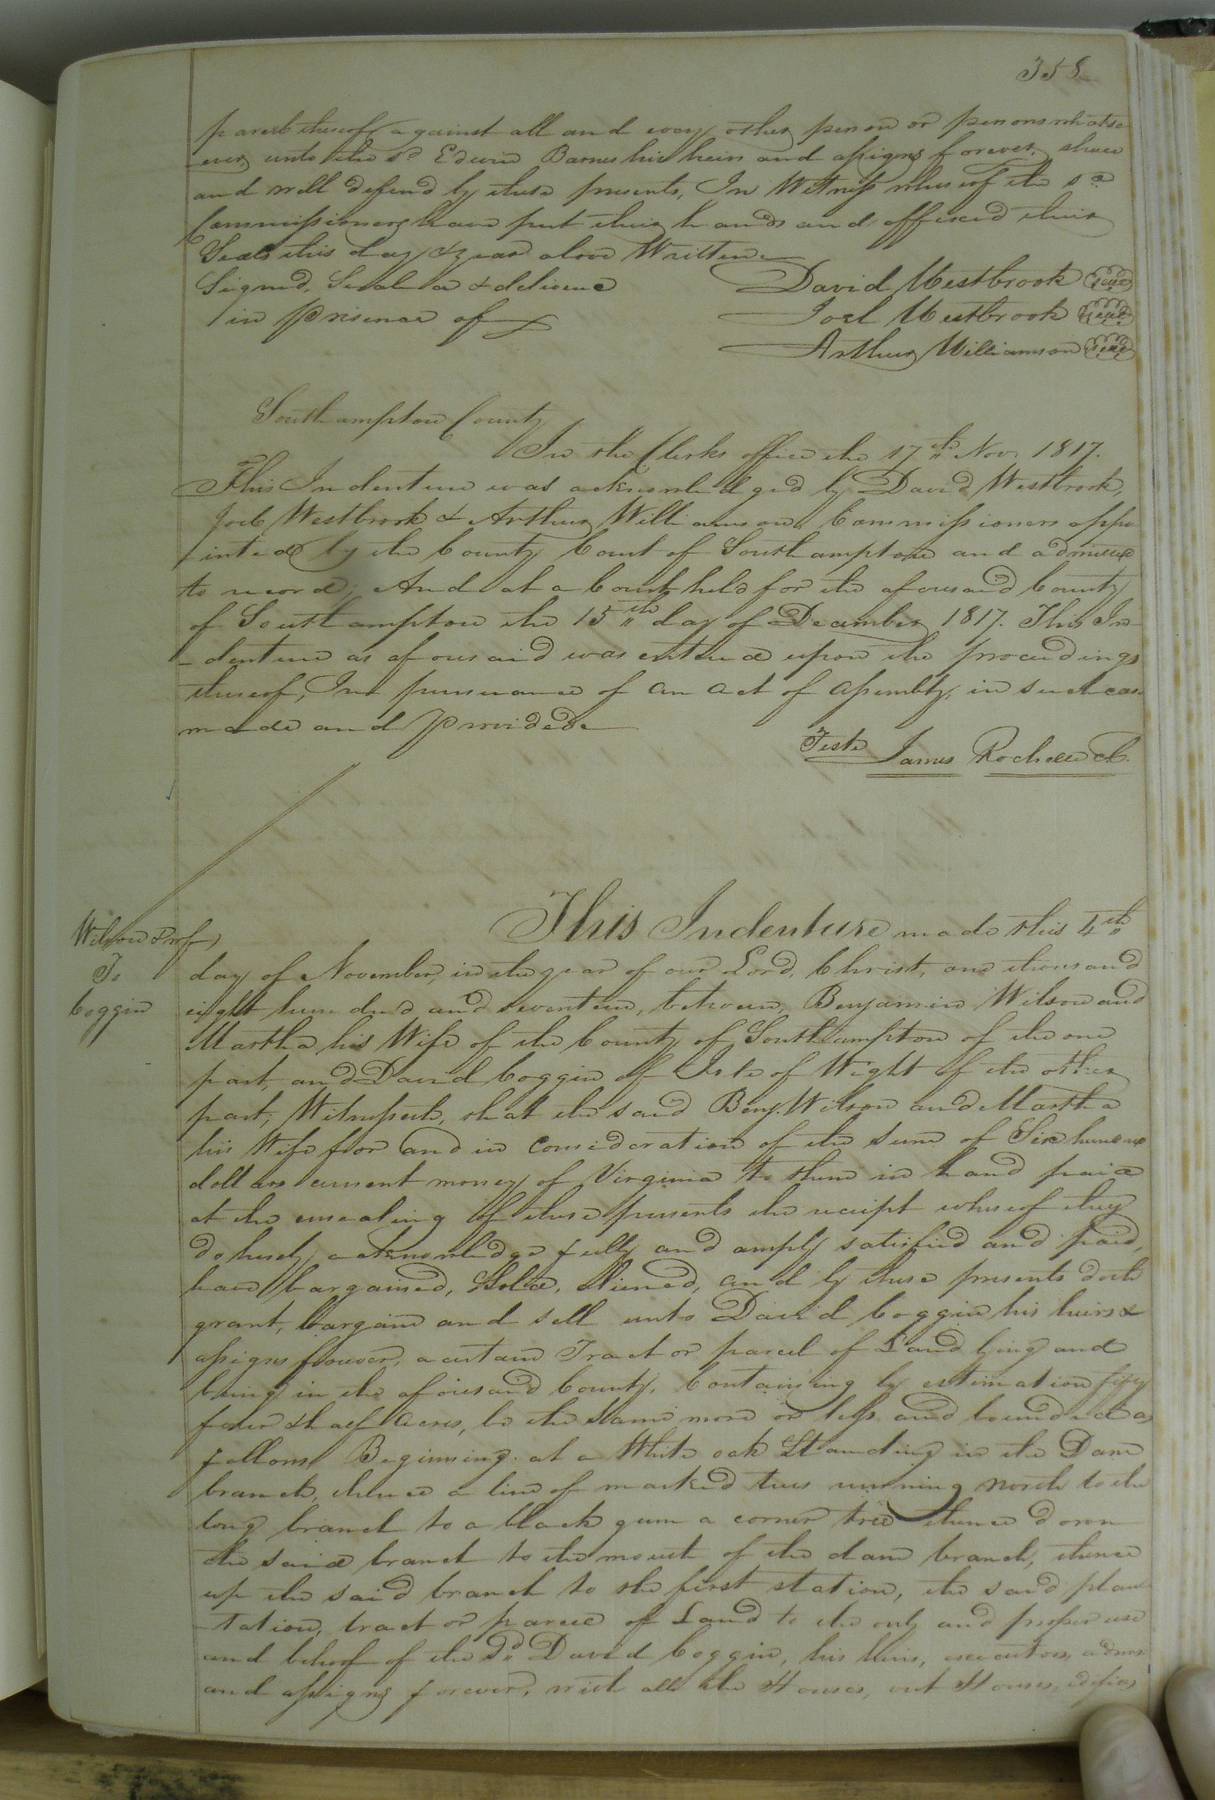 358
parcel thereof against all and every other person or persons whatso
-ever unto the sd Edwin Barnes his heirs and assigns forever shall
and will defend by these presents, In Witness whereof the sd
Commissioners have put their hands and affixed their
Seals this day & year above Written
Signed, Sealed & delivered
in presence of
David Westbrook Seal
Joel Westbrook Seal
Arthur Williamson Seal
Southampton County
In the Clerks office the 17th Nov. 1817.
This Indenture was acknowledged by David Westbrook,
Joel Westbrook & Arthur Williamson Commissioners appo
-inted by the County Court of Southampton and admitted
to record; And at a Court held for the aforesaid County
of Southampton the 15th day of December 1817. This In
-denture as aforesaid was entered upon the proceedings
thereof, In pursuance of an act of assembly, in such case
made and provided
Teste James Rochelle Cl.
Wilson & wf
To
Coggin
This Indenture made this 4th
day of November, in the year of our Lord, Christ, one thousand
eight hundred and seventeen, between, Benjamin Wilson and
Martha his Wife of the County of Southampton of the one
part, and David Coggin of Isle of Wight of the other
part; Witnesseth, that the said Benj. Wilson and Martha
his Wife for and in consideration of the sum of Six hundred
dollars current money of Virginia to them in hand paid
at the ensealing of these presents the receipt whereof they
do hereby acknowledge fully and amply satisfied and paid,
have bargained, Sold, Aliened, and by these presents doth
grant, bargain and sell unto David Coggin his heirs &
assigns forever, a certain Tract or parcel of Land lying and
being in the aforesaid County, Containing by estimation fifty
four & half Acres, be the same more or less, and bounded as
follows Beginning at a White oak Standing in the Dam
branch, thence a line of marked trees running North to the
long branch to a black gum a corner tree thence down
the said branch to the mouth of the dam branch, thence
up the said branch to the first station, the said plan
-tation, tract or parcel of Land to the only and proper use
and behoof of the sd David Coggin, his heirs, executors, admrs
and assigns forever, with all the Houses, out Houses, edifices